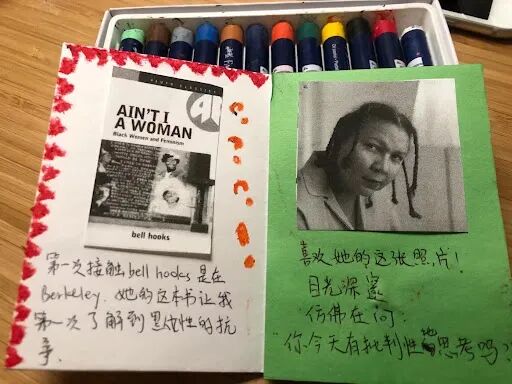 AIN'T I
A WOMAN
Black Women and Feminism
bell hooks
第一次接触bell hooks是在
Berkeley. 她的这本书让我
第一次了解到黑女性的抗
争.
喜欢她的这张照片!
目光深邃
仿佛在问:
"你今天有批判性地思考吗?"